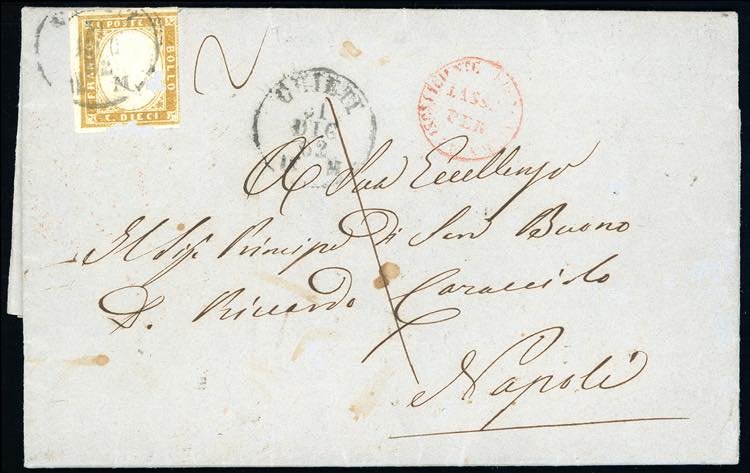 POSTE
FRANCO
BOLLO
C. DIECI
2
31
DIC
62
M
PER
A Sua Eccellenza
Il Sig. Principe di San Buono
D. Riccardo Caracciolo
Napoli